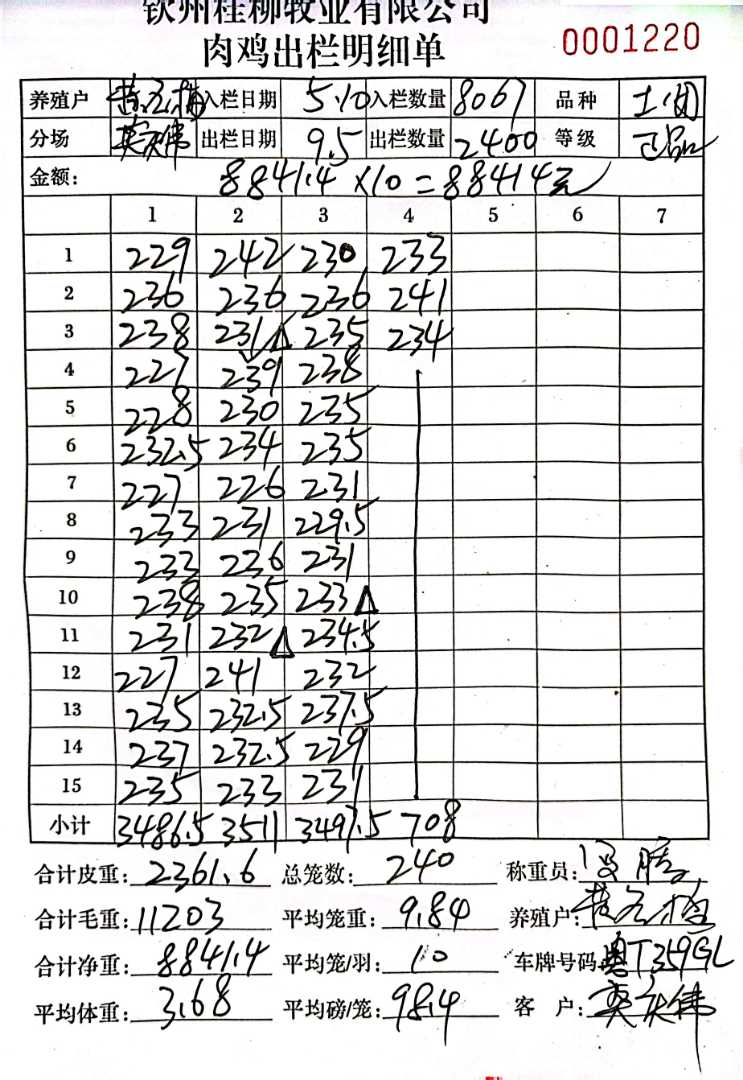 钦州桂柳牧业有限公司
肉鸡出栏明细单 0001220
养殖户 入栏日期 5.10 入栏数量 8067 品种 土
分场 出栏日期 9.5 出栏数量 2400 等级 正品
金额: 8841.4 ×10 = 88414元
1 2 3 4 5 6 7
1 229 242 230 233
2 236 236 236 241
3 238 231△ 235 234
4 227 239 238
5 228 230 235
6 232.5 234 235
7 227 226 231
8 233 231 229.5
9 233 236 231
10 238 235 233△
11 231 232△ 234.5
12 227 241 232
13 235 232.5 237.5
14 237 232.5 229
15 235 233 231
小计 3486.5 3511 3497.5 708
合计皮重: 2361.6 总笼数: 240 称重员:
合计毛重: 11203 平均笼重: 9.84 养殖户:
合计净重: 8841.4 平均笼/羽: 10 车牌号码: 粤T359GL
平均体重: 3.68 平均磅/笼: 98.4 客 户: